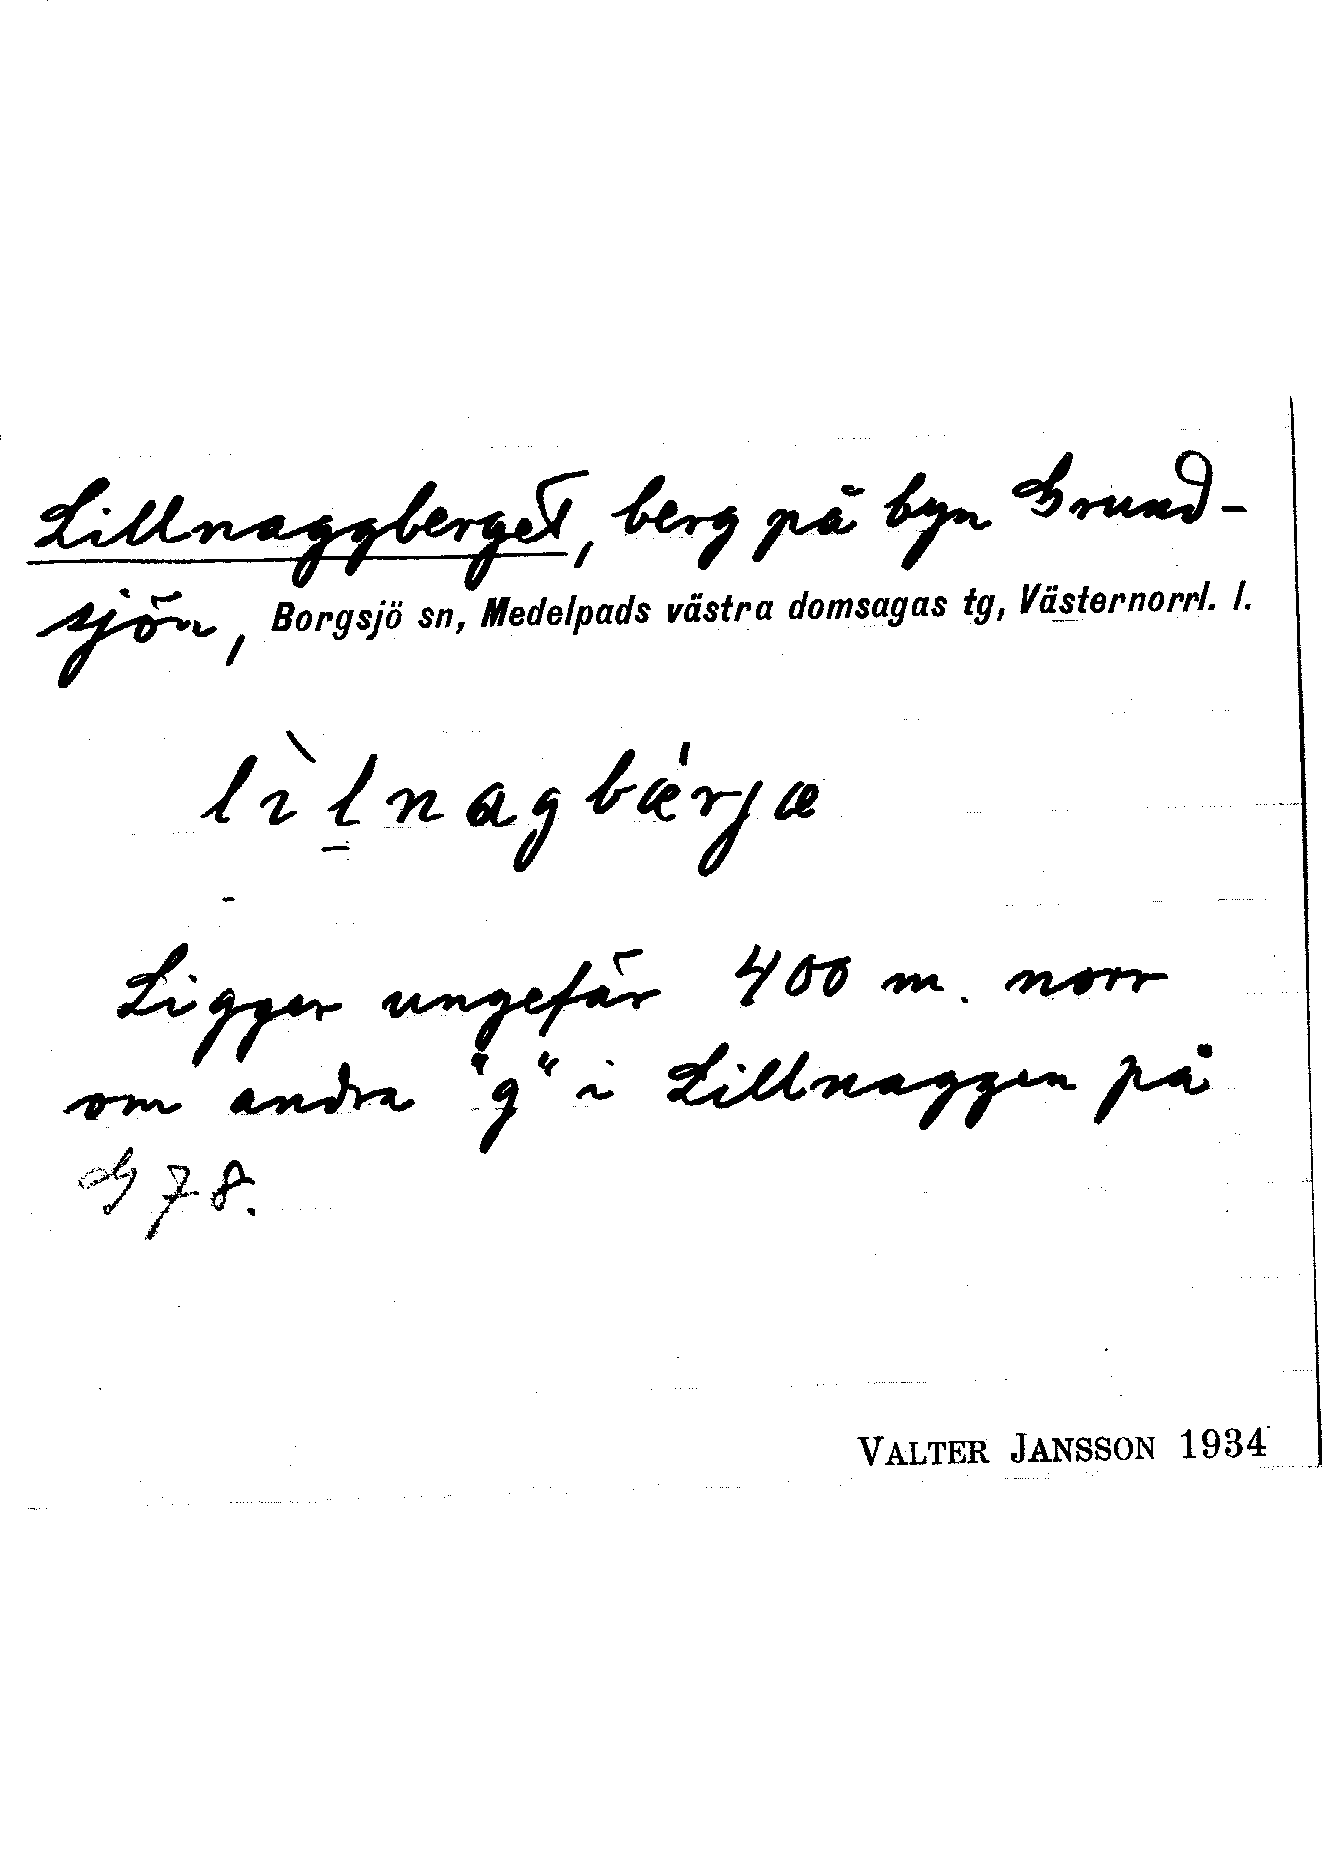 Lillnaggberget, berg på byn Grund-
sjön, Borgsjö sn, Medelpads västra domsagas tg, Västernorrl. l.
lìlnagbǽrjæ
Ligger ungefär 400 m. norr
om andra "g" i Lillnaggen på
G 78.
VALTER JANSSON 1934